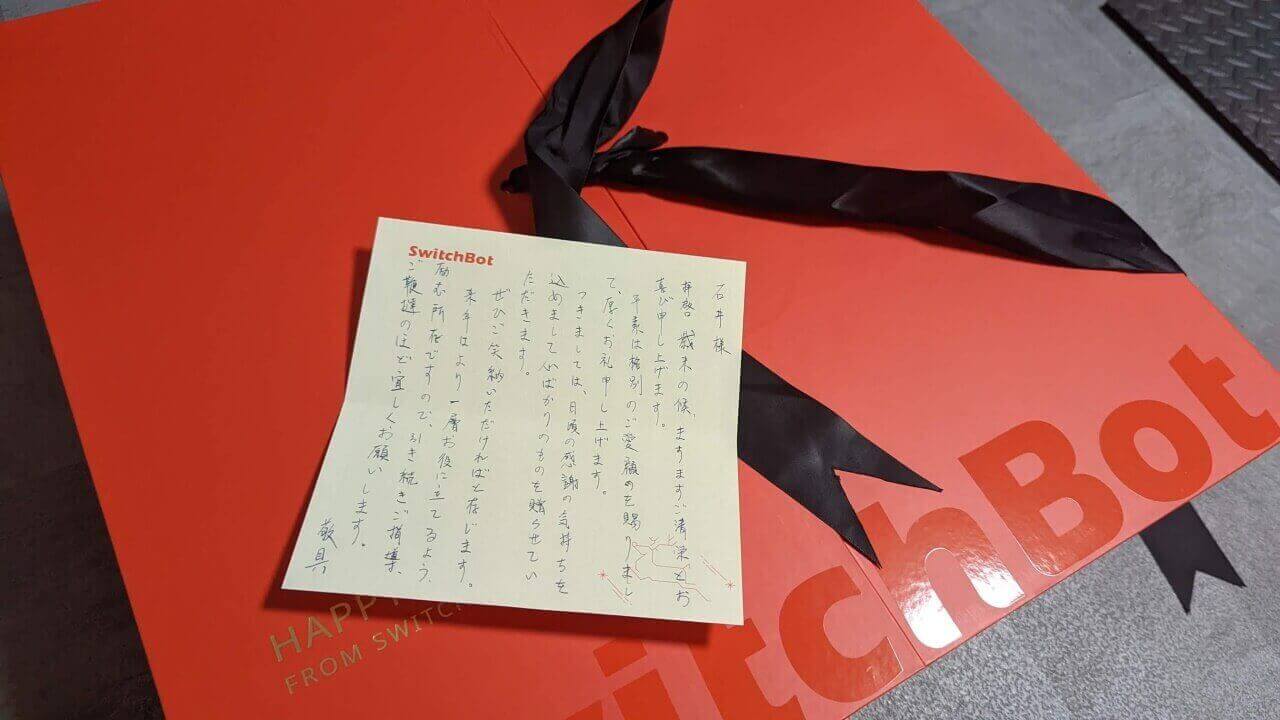 SwitchBot
石井様
拝啓 歳末の候、ますますご清栄とお
喜び申し上げます。
平素は格別のご愛顧のを賜りまし
て、厚くお礼申し上げます。
つきましては、日頃の感謝の気持ちを
込めまして心ばかりのものを贈らせてい
ただきます。
ぜひご笑納いただければと存じます。
来年はより一層お役に立てるよう、
励む所存ですので、引き続きご指導、
ご鞭撻のほど宜しくお願いします。
敬具
HAPP
FROM SWITCH
itchBot